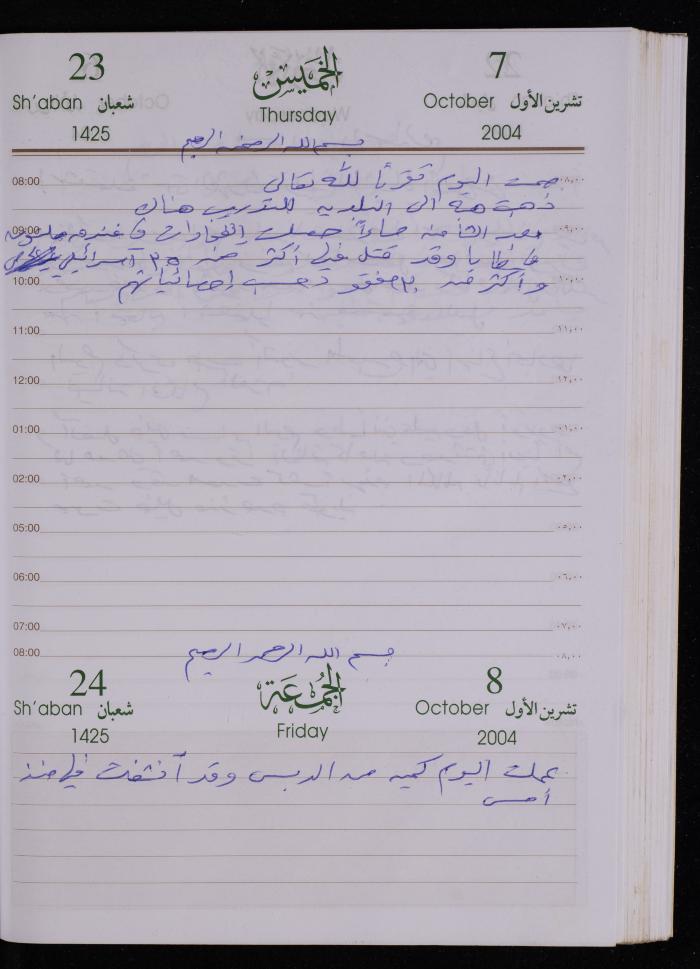 23 الخميس 7
Sh'aban شعبان Thursday October تشرين الأول
1425 2004
بسم الله الرحمن الرحيم
08:00 صمت اليوم تقربًا لله تعالى ٠٨,٠٠
ذهبت هبة الى البلدية للتدريب هناك
09:00 بعد الثامنة مساءً حصلت إنفجارات في فندق هيلتون ٠٩,٠٠
طابا وقد قتل فيها أكثر من ٣٥ اسرائيلي
10:00 وأكثر من ٣٠ مفقود حسب إحصائياتهم ١٠,٠٠
11:00 ١١,٠٠
12:00 ١٢,٠٠
01:00 ٠١,٠٠
02:00 ٠٢,٠٠
05:00 ٠٥,٠٠
06:00 ٠٦,٠٠
07:00 ٠٧,٠٠
08:00 ٠٨,٠٠
بسم الله الرحمن الرحيم
24 الجمعة 8
Sh'aban شعبان Friday October تشرين الأول
1425 2004
عملت اليوم كمية من الدبس وقد في منذ
أمس